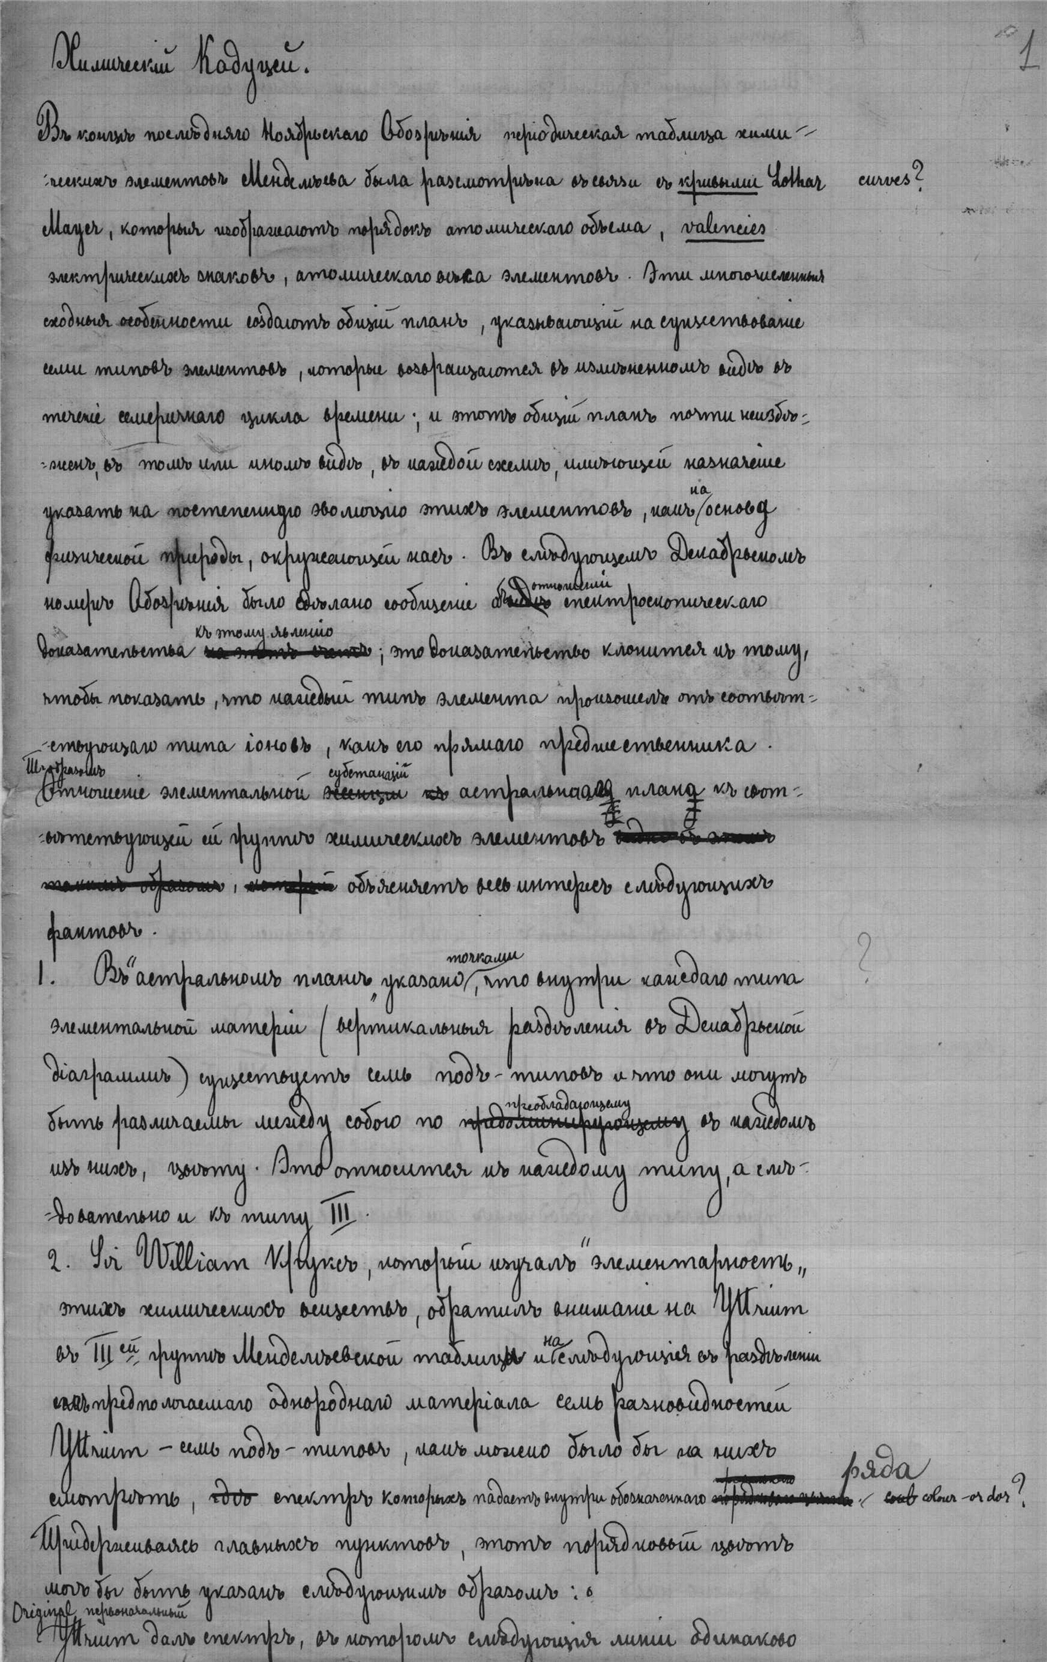 1
Химическій Кадуцей.
Въ концѣ послѣдняго Ноябрьскаго Обозрѣнія періодическая таблица хими=
=ческихъ элементовъ Менделѣева была разсмотрѣна въ связи съ кривыми Lothar curves?
Mayer, которыя изображаютъ порядокъ атомическаго объема, valencies
электрическихъ знаковъ, атомическаго вѣса элементовъ. Эти многочисленныя
сходныя особенности создаютъ общій планъ, указывающій на существованіе
семи типовъ элементовъ, которые возвращаются въ измѣненномъ видѣ въ
теченіе семеричнаго цикла времени; и этотъ общій планъ почти неизбѣ=
=женъ, въ томъ или иномъ видѣ, въ каждой схемѣ, имѣющей назначеніе
указать на постепенную эволюцію этихъ элементовъ, какъ на основу
физической природы, окружающей насъ. Въ слѣдующемъ Декабрьскомъ
номерѣ Обозрѣнія было сдѣлано сообщеніе отношеніи спектроскопическаго
доказательства къ этому явленію на этотъ счетъ; это доказательство клонится къ тому,
чтобы показать, что каждый типъ элемента произошелъ отъ соотвѣт=
=ствующаго типа іоновъ, какъ его прямаго предшественника.
Т. образомъ
Отношеніе элементальной эссенціи субстанціи къ астральнаго плана къ соот=
=вѣтствующей ей группѣ химическихъ элементовъ видно въ этомъ
такимъ образомъ, который объясняетъ весь интересъ слѣдующихъ
фактовъ.
1. Въ "астральномъ планѣ" указано точками, что внутри каждаго типа ?
элементальной матеріи (вертикальныя раздѣленія въ Декабрьской
діаграммѣ) существуетъ семь подъ-типовъ и что они могутъ
быть различаемы между собою по предоминирующему преобладающему въ каждомъ
изъ нихъ, цвѣту. Это относится къ каждому типу, а слѣ=
=довательно и къ типу III.
2. Sir William Круксъ, который изучалъ "элементарность"
этихъ химическихъ веществъ, обратилъ вниманіе на Yttrium
въ III ей группѣ Менделѣевской таблицы и на слѣдующія въ раздѣленіи
предпологаемаго однороднаго матеріала семь разновидностей
Yttrium – семь подъ-типовъ, какъ можно было бы на нихъ
смотрѣть, гдѣ спектръ которыхъ падаетъ внутри обозначеннаго порядковаго цвѣта ряда colour-or dor?
Придерживаясь главныхъ пунктовъ, этотъ порядковый цвѣтъ
могъ бы быть указанъ слѣдующимъ образомъ:
Original первоначальный
Yttrium далъ спектръ, въ которомъ слѣдующія линіи одинаково